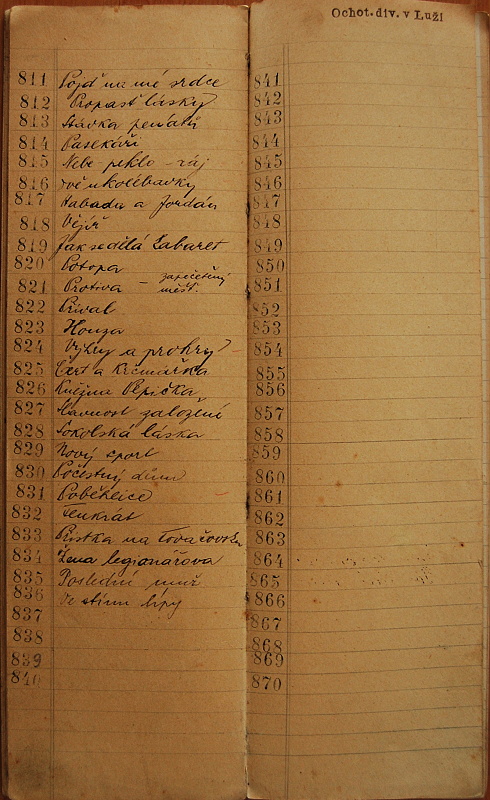 Ochot.div. v Luži
811 Pojď na mé srdce
812 Propast lásky
813 Stávka penátů
814 Pasekáři
815 Nebe peklo - ráj
816 Dvě ukolébavky
817 Habada a Jordán
818 Vějíř
819 Jak se dělá Kabaret
820 Potopa
821 Protiva - zapečetěný měšť.
822 Příval
823 Honza
824 Výhry a prohry
825 Čert a Krčmářka
826 Kněžna Pepička
827 Slavnost založení
828 Sokolská láska
829 Nový sport
830 Počestný dům
831 Poběhlice
832 Tenkrát
833 na Tovačovsku
834 Žena legionářova
835 Poslední muž
836 Ve stínu lípy
837
838
839
840
841
842
843
844
845
846
847
848
849
850
851
852
853
854
855
856
857
858
859
860
861
862
863
864
865
866
867
868
869
870